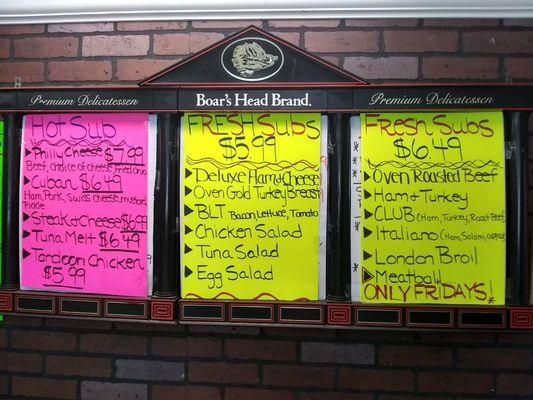 Premium Delicatessen
Boar's Head Brand.
Premium Delicatessen
Hot Sub
Philly Cheese $7.99
Beef, choice of cheese, fried onio
Cuban $6.49
Ham, Pork, Swiss cheese, mustard,
Pickle
Steak and Cheese $6.99
Tuna Melt $6.49
Tandoori Chicken
$5.99
FRESH SUBS
$5.99
Deluxe Ham & Cheese
Oven Gold Turkey Breast
BLT Bacon, Lettuce, Tomato
Chicken Salad
Tuna Salad
Egg Salad
Fresh Subs
$6.49
Oven Roasted Beef
Ham & Turkey
CLUB (Ham, Turkey, Roast Beef)
Italiano (Ham, Salami,
London Broil
Meatball!
ONLY FRIDAYS!